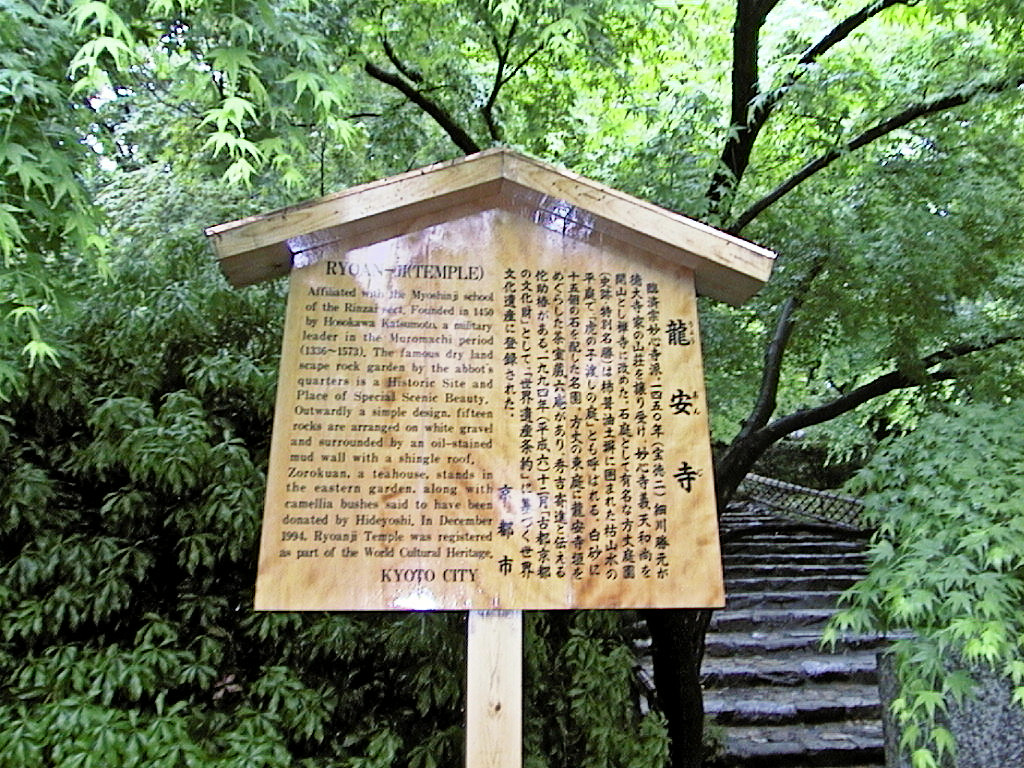 RYOAN-JI(TEMPLE)
Affiliated with the Myoshinji school
of the Rinzai sect, Founded in 1450
by Hosokawa Katsumoto, a military
leader in the Muromachi period
(1336~1573). The famous dry land
scape rock garden by the abbot's
quarters is a Historic Site and
Place of Special Scenic Beauty.
Outwardly a simple design, fifteen
rocks are arranged on white gravel
and surrounded by an oil-stained
mud wall with a shingle roof.
Zorokuan, a teahouse, stands in
the eastern garden, along with
camellia bushes said to have been
donated by Hideyoshi. In December
1994, Ryoanji Temple was registered
as part of the World Cultural Heritage.
KYOTO CITY
龍安寺
りょう あん じ
臨済宗妙心寺派。一四五〇年(宝徳二)細川勝元が
徳大寺家の山荘を譲り受け、妙心寺義天和尚を
開山とし禅寺に改めた。石庭として有名な方丈庭園
(史跡・特別名勝)は柿葺油土塀に囲まれた枯山水の
平庭で、「虎の子渡しの庭」とも呼ばれる。白砂に
十五個の石を配した名園。方丈の東庭に龍安寺垣を
めぐらした茶室蔵六庵があり、秀吉寄進と伝える
侘助椿がある。一九九四年(平成六)十二月「古都京都
の文化財」として、「世界遺産条約」に基づく世界
文化遺産に登録された。
京都市